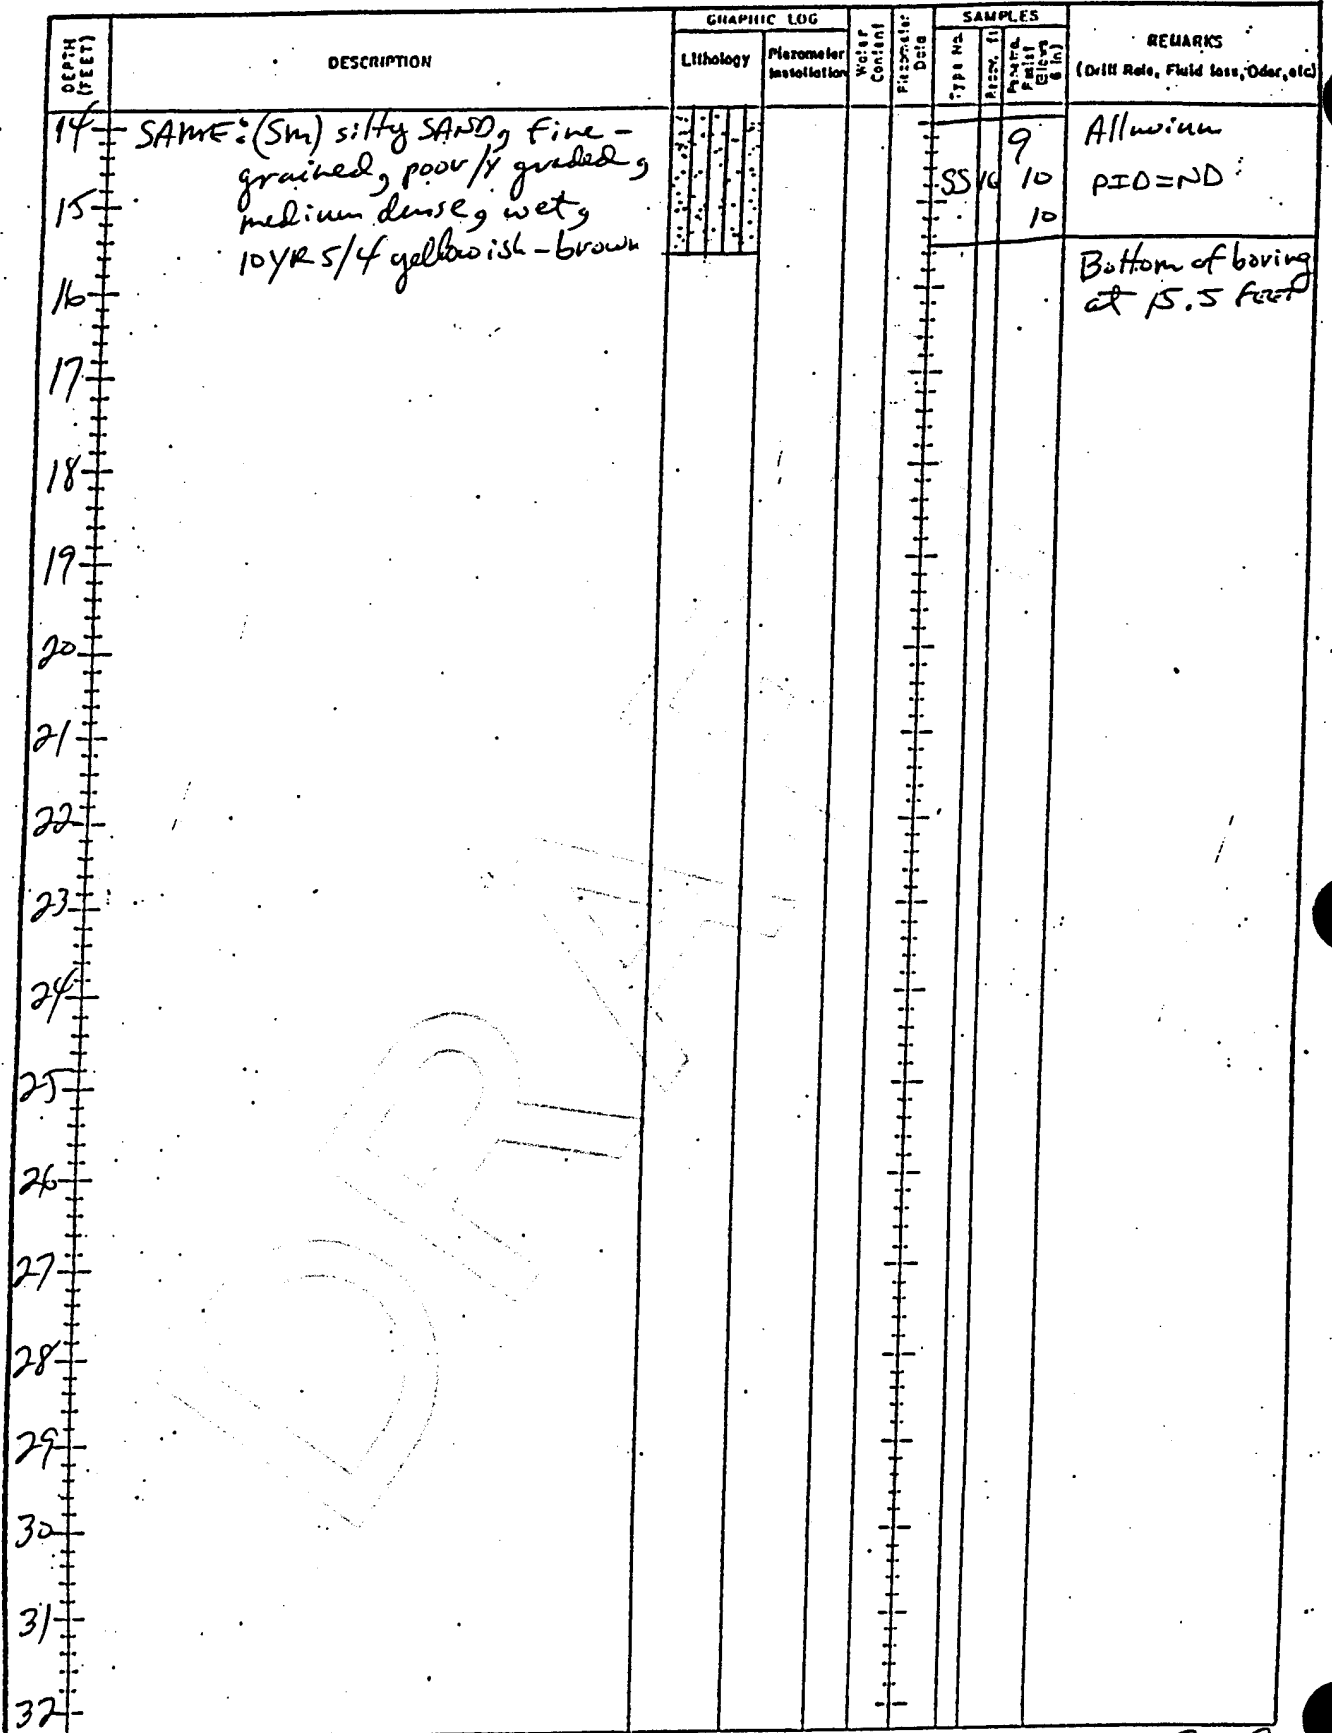 DEPTH
(FEET)
DESCRIPTION
GRAPHIC LOG
Lithology
Piezometer
Installation
Water
Content
Piezometer
Data
SAMPLES
Type No.
REMARKS
(Drill Rate, Fluid loss, Odor, etc)
14
SAME: (SM) silty SAND, fine-
grained, poorly graded,
medium dense, wet,
10YR 5/4 yellowish-brown
SS
16
9
10
10
Alluvium
PID=ND
Bottom of boring
at 15.5 FEET
15
16
17
18
19
20
21
22
23
24
25
26
27
28
29
30
31
32
DRAFT